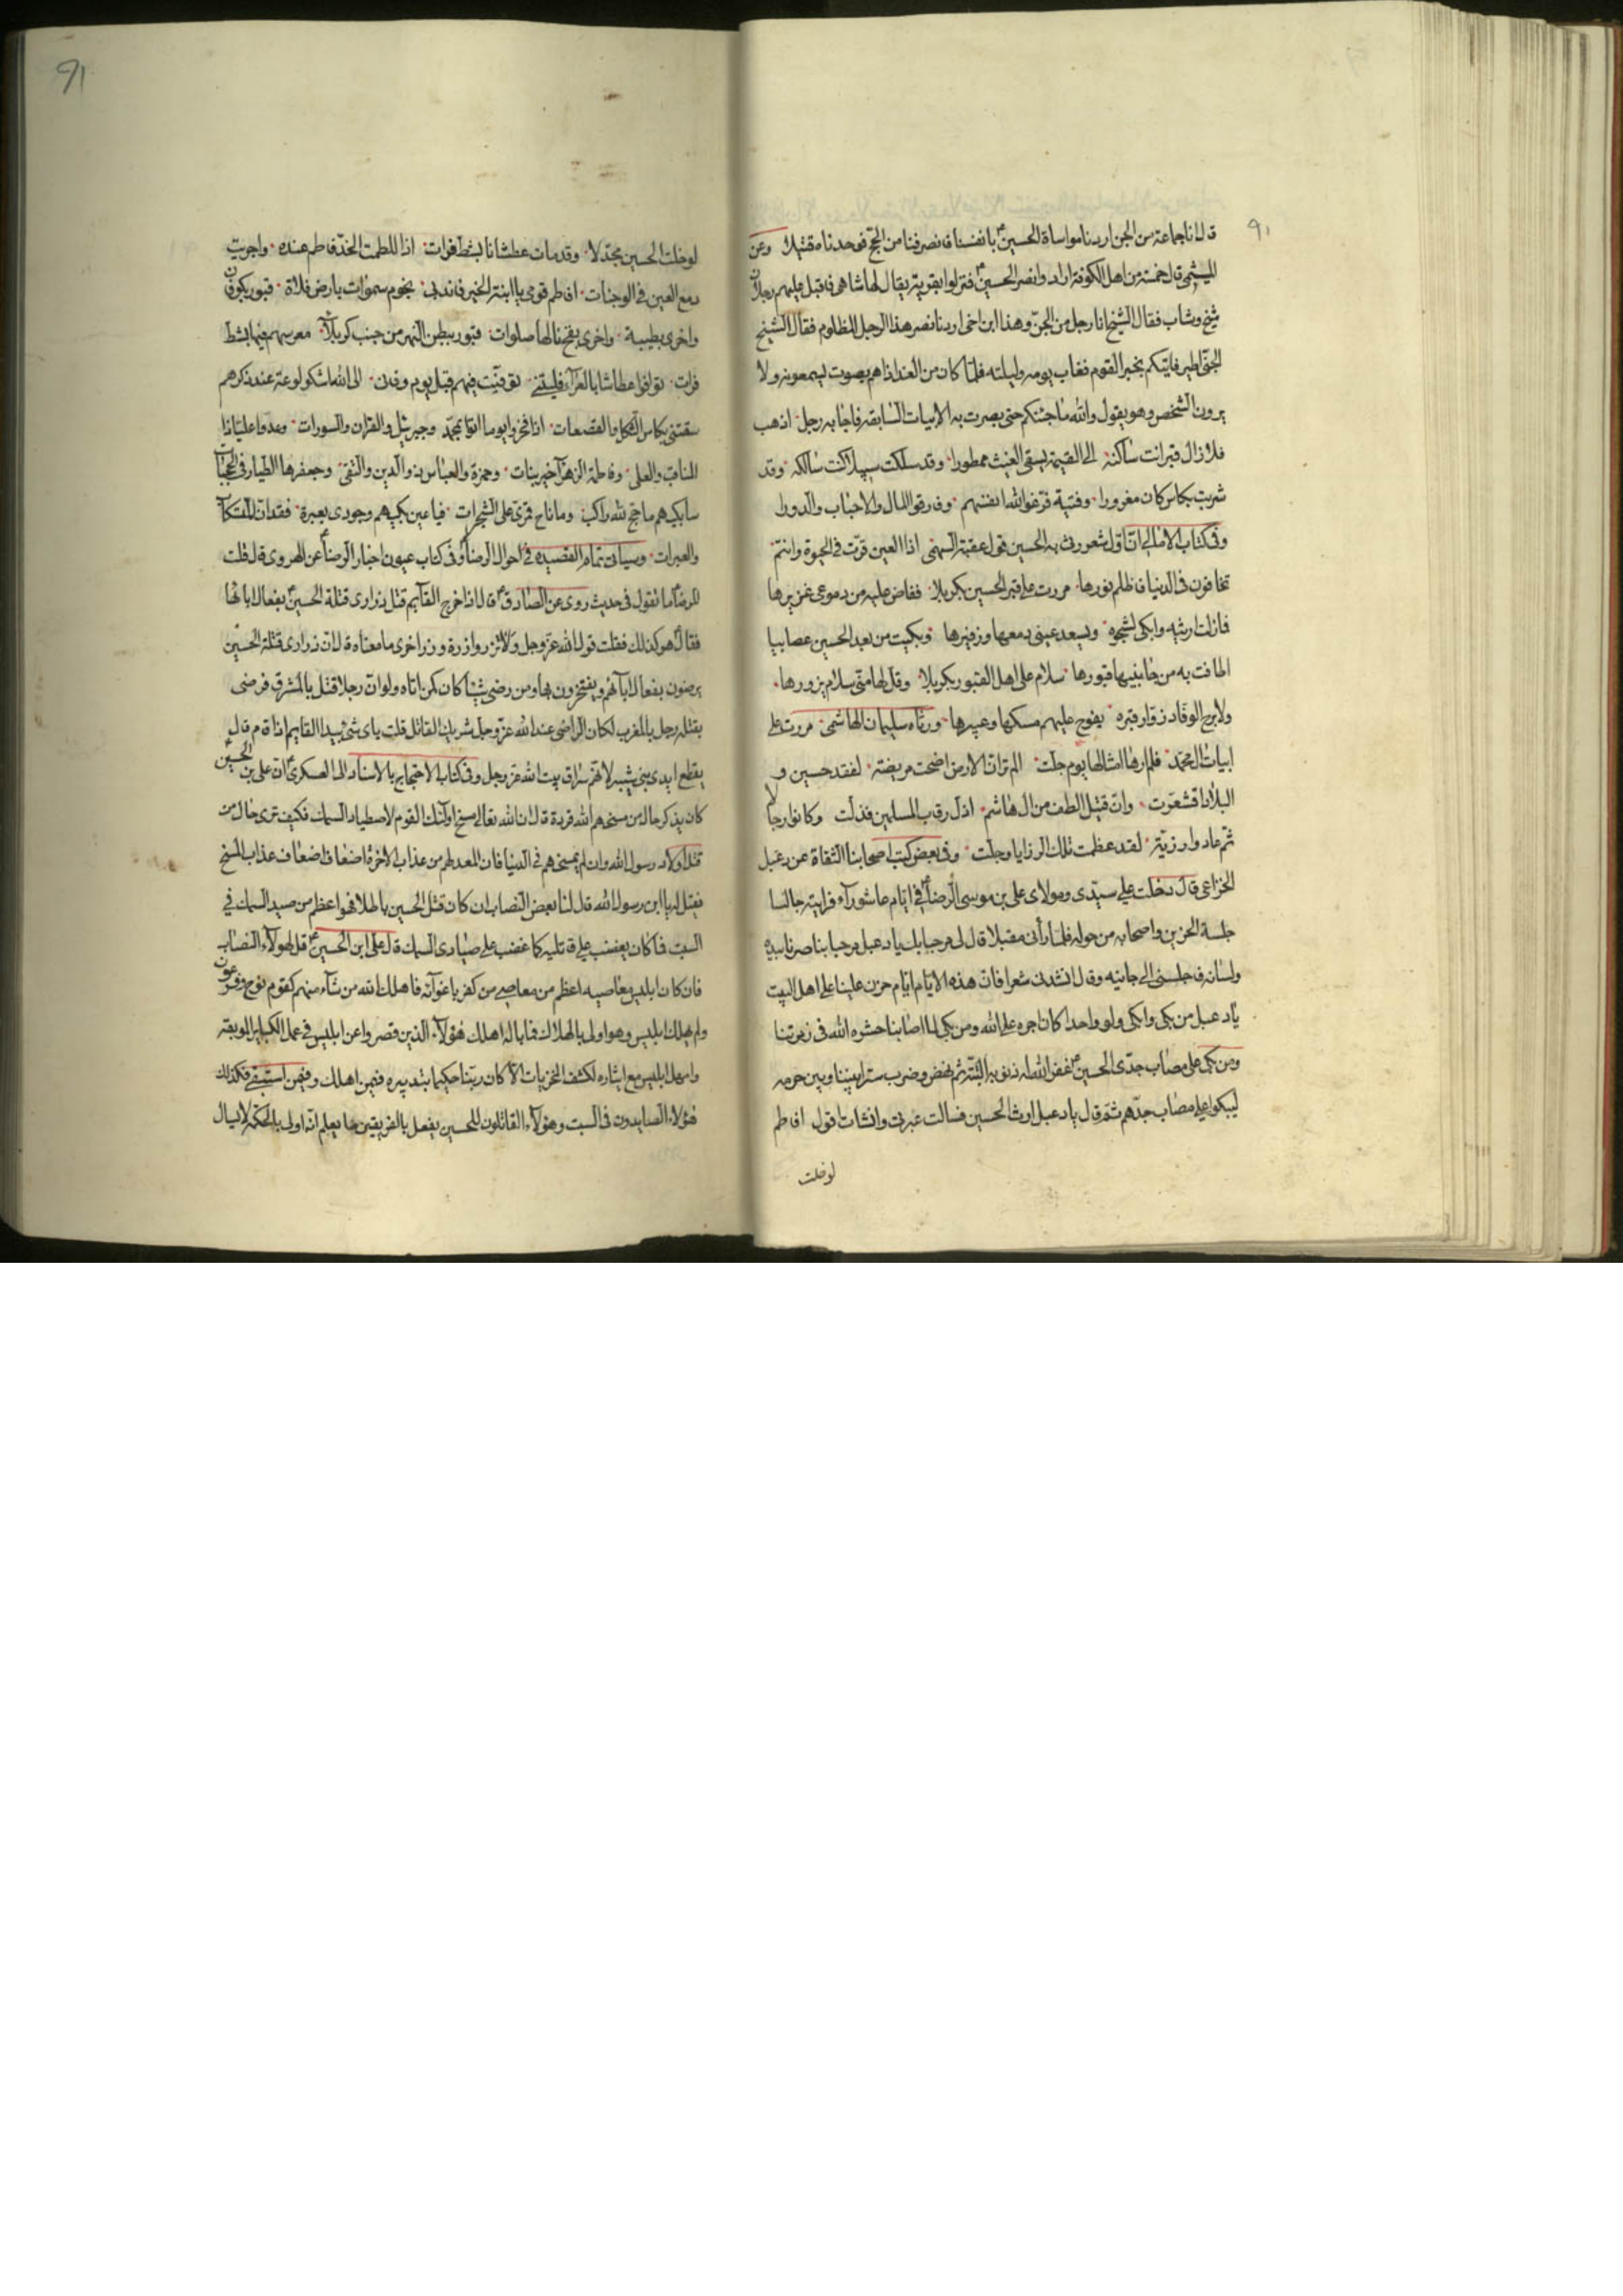 ٩٠
قال انا جماعة من الجن اردنا مواساة الحسين ع بانفسنا فانصرفنا من الحج فوجدناه قتيلا وعن
الميثمي قال خمسة من اهل الكوفة ارادوا نصر الحسين ع فنزلوا بقرية يقال لها شاهى فاقبل عليهم رجلان
شيخ وشاب فقال الشيخ انا رجل من الجن وهذا ابن اخى اردنا نصر هذا الرجل المظلوم فقال الشيخ
الجنى اطير فاتيكم بخبر القوم فغاب يومه وليلته فلما كان من الغد اذا هم بصوت يسمعونه ولا
يرون الشخص وهو يقول والله ما جئتكم حتى بصرت به الابيات السابقه فاجابه رجل اذهب
فلا زال قبر انت ساكنه الى القيمة يسقى الغيث ممطورا وقد سلكت سبيلا كنت سالكه وقد
شربت بكاس كان مغرورا وفتية فرغوا لله انفسهم وفارقوا المال والاحباب والدورا
وفى كتاب الامالى ان اول شعر رثى به الحسين قول عقبة السهمى اذا العين قرت فى الحيوة وانتم
تخافون فى الدنيا فاظلم نورها مررت على قبر الحسين بكربلا ففاض عليه من دموعى غزيرها
فما زلت ارثيه وابكى لشجوه ويسعد عينى دمعها وزفيرها وبكيت من بعد الحسين عصايبا
اطافت به من جانبيها قبورها سلام على اهل القبور بكربلا وقل لها منى سلام يزورها
ولا برح الوفاد زوار قبره يفوح عليهم مسكها وعبيرها ورثاه سليمان الهاشمى مررت على
ابيات ال محمد فلم ارها امثالها يوم حلت الم تر ان الارض اضحت مريضة لفقد حسين و
البلاد اقشعرت وان قتيل الطف من ال هاشم اذل رقاب المسلمين فذلت وكانوا رجاء
ثم عادوا رزية لقد عظمت تلك الرزايا وجلت وفى بعض كتب اصحابنا الثقاة عن دعبل
الخزاعى قال دخلت على سيدى ومولاى على بن موسى الرضا ع فى ايام عاشوراء فرايته جالسا
جلسة الحزين واصحابه من حوله فلما رأنى مقبلا قال لى مرحبا بك يا دعبل مرحبا بناصرنا بيده
ولسانه فاجلسنى الى جانبه وقال انشدنى شعرا فان هذه الايام ايام حزن علينا اهل البيت
يا دعبل من بكى وابكى ولو واحدا كان اجره على الله ومن بكى لما اصابنا حشره الله فى زمرتنا
ومن بكى على مصاب جدى الحسين ع غفر الله له ذنوبه البتة ثم نهض وضرب سترا بيننا وبين حرمه
ليبكوا على مصاب جدهم ثم قال يا دعبل ارث الحسين فسالت عبرتى وانشات اقول افاطم
لو خلت
91
لو خلت الحسين مجدلا وقد مات عطشانا بشط فرات اذا للطمت الخد فاطم عنده واجريت
دمع العين فى الوجنات افاطم قومى يا ابنة الخير فاندبى نجوم سموات بارض فلاة قبور بكوفان
واخرى بطيبة واخرى بفخ نالها صلوات قبور ببطن النهر من جنب كربلا معرسهم فيها بشط
فرات توافوا عطاشا بالعراء فليتنى توفيت فيهم قبل يوم وفاتى الى الله اشكو لوعة عند ذكرهم
سقتنى بكاس الثكل والفضعات اذا فخروا يوما اتوا بمحمد وجبرئيل والقران والسورات وعدوا عليا ذا
المناقب والعلى وفاطمة الزهراء خير بنات وحمزة والعباس ذو الدين والتقى وجعفرها الطيار فى الحجبات
سابكيهم ما حج لله راكب وما ناح قمرى على الشجرات فيا عين بكيهم وجودى بعبرة فقد ان للتسكاب
والعبرات وسيأتى تمام القصيده فى احوال الرضا ع وفى كتاب عيون اخبار الرضا ع عن الهروى قال قلت
للرضا ع ما تقول فى حديث روى عن الصادق ع قال اذا خرج القائم قتل ذرارى قتلة الحسين ع بفعال ابائها
فقال ع هو كذلك فقلت قول الله عز وجل ولا تزر وازرة وزر اخرى ما معناه قال ان ذرارى قتلة الحسين
يرضون بفعال ابائهم ويفتخرون بها ومن رضى شيئا كان كمن اتاه ولو ان رجلا قتل بالمشرق فرضى
بقتله رجل بالمغرب لكان الراضى عند الله عز وجل شريك القاتل قلت باى شئ يبدا القايم اذا قام قال
يقطع ايدى بنى شيبه لانهم سراق بيت الله عز وجل وفى كتاب الاحتجاج بالاسناد الى العسكرى ع ان على بن الحسين
كان يذكر حال من مسخهم الله قردة قال ان الله تعالى مسخ اولئك القوم لاصطياد السمك فكيف ترى حال من
قتل اولاد رسول الله وان لم يمسخهم فى الدنيا فان المعد لهم من عذاب الاخرة اضعاف اضعاف عذاب المسخ
فقيل له يا ابن رسول الله قال لنا بعض النصاب ان كان قتل الحسين باطلا فهو اعظم من صيد السمك فى
السبت فما كان يغضب على قاتليه كما غضب على صيادى السمك قال على ابن الحسين ع قل لهؤلاء النصاب
فان كان ابليس معاصيه اعظم من معاصى من كفر باغوائه فاهلك الله من شاء منهم كقوم نوح وفرعون
ولم يهلك ابليس وهو اولى بالهلاك فما باله اهلك هؤلاء الذين قصروا عن ابليس فى عمل الكباير الموبقه
وامهل ابليس مع ايثاره لكشف المخزيات الا كان ربنا حكيما بتدبيره فيمن اهلك وفيمن استبقى فكذلك
هؤلاء الصايدون فى السبت وهؤلاء القاتلون للحسين يفعل بالفريقين ما يعلم انه اولى بالحكمة لا يسال